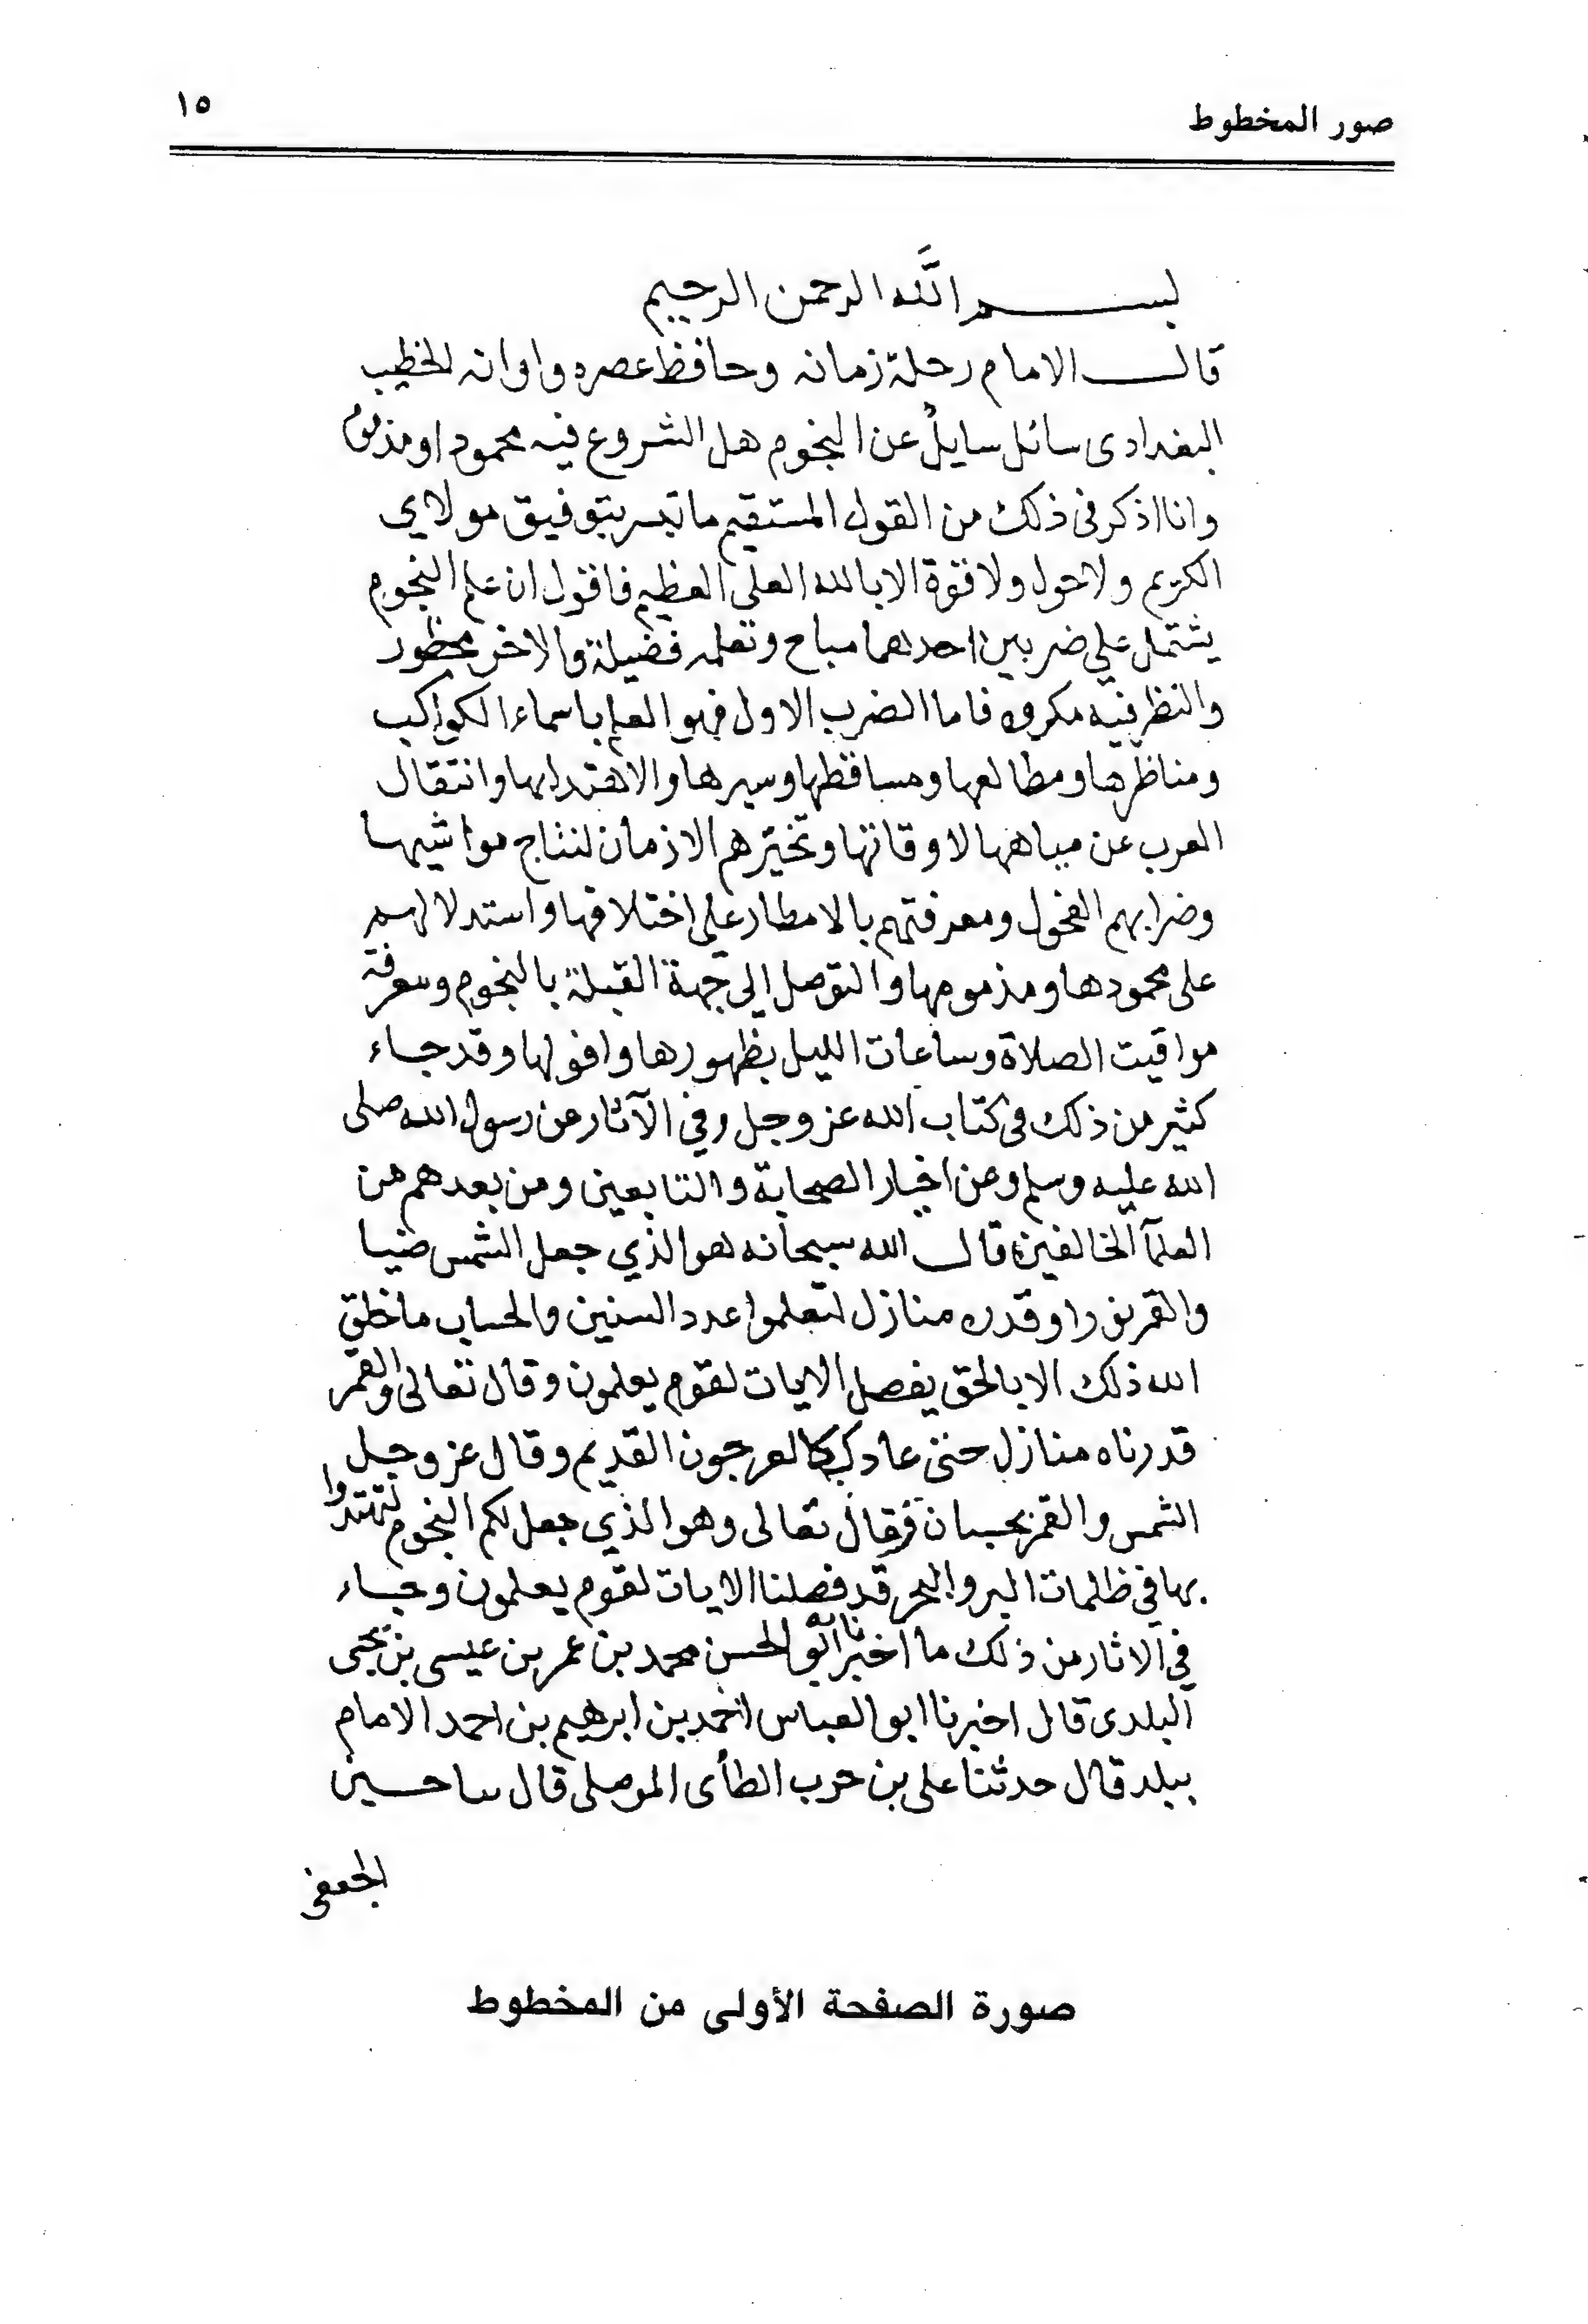 صور المخطوط
١٥
بسم الله الرحمن الرحيم
قال الامام رحلة زمانه وحافظ عصره واوانه الخطيب
البغدادى سائل سايلٌ عن النجوم هل الشروع فيه محمود او مذموم
وانا اذكر فى ذلك من القول المستقيم ما تيسر بتوفيق مولاي
الكريم ولاحول ولا قوة الا بالله العلى العظيم فاقول ان علم النجوم
يشتمل علي ضربين احدهما مباح وتعلمه فضيلة والاخر محظور
والنظر فيه مكروه فاما الضرب الاول فهو العلم باسماء الكواكب
ومناظرها ومطالعها ومساقطها وسيرها والاهتدا بها وانتقال
العرب عن مياهها لاوقاتها وتخيّرهم الازمان لنتاج مواشيها
وضرابهم الفحول ومعرفتهم بالامطار علي اختلافها واستدلالهم
على محمودها ومذمومها والتوصل الى جهة القبلة بالنجوم ومعرفة
مواقيت الصلاة وساعات الليل بظهورها وافولها وقد جاء
كثير من ذلك فى كتاب الله عز وجل وفي الآثار عن رسول الله صلى
الله عليه وسلم وعن اخبار الصحابة والتابعين ومن بعدهم من
العلمآ الخالفين قال الله سبحانه هو الذي جعل الشمس ضيا
والقمر نورا وقدره منازل لتعلموا عدد السنين والحساب ما خلق
الله ذلك الا بالحق يفصل الايات لقوم يعلمون وقال تعالى والقمر
قدرناه منازل حتى عاد كالعرجون القديم وقال عز وجل
الشمس والقمر بحسبان وقال تعالى وهو الذي جعل لكم النجوم لتهتدوا
بها في ظلمات البر والبحر قد فصلنا الايات لقوم يعلمون وجاء
في الاثار من ذلك ما اخبرنا ابو الحسن محمد بن عمر بن عيسى بن يحيى
البلدى قال اخبرنا ابو العباس احمد بن ابرهيم بن احمد الامام
ببلد قال حدثنا على بن حرب الطأى الموصلى قال سا حسين
الجعفى
صورة الصفحة الأولى من المخطوط